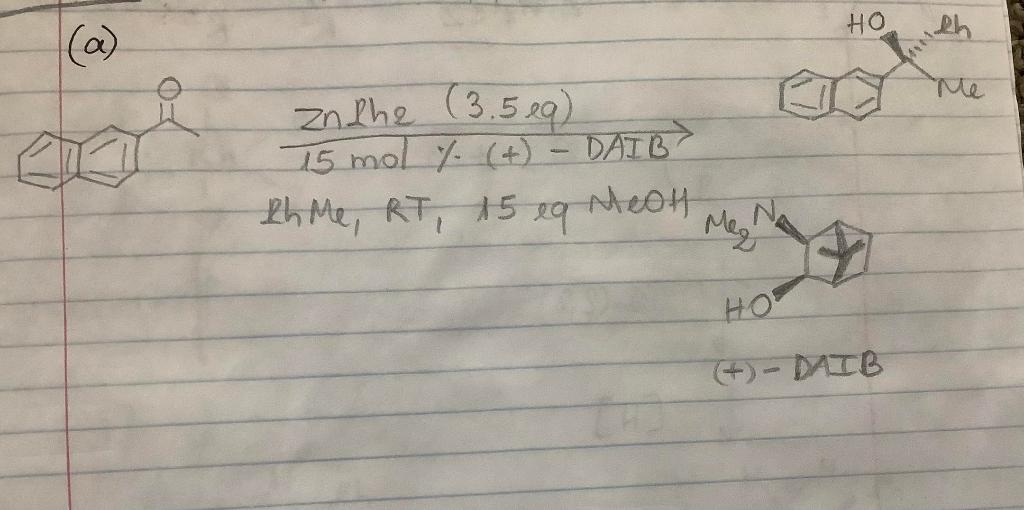 (a)
HO Ph
Me
O
ZnPh2 (3.5 eq)
15 mol % (+) - DAIB
PhMe, RT, 15 eq MeOH
Me2N
HO
(+) - DAIB